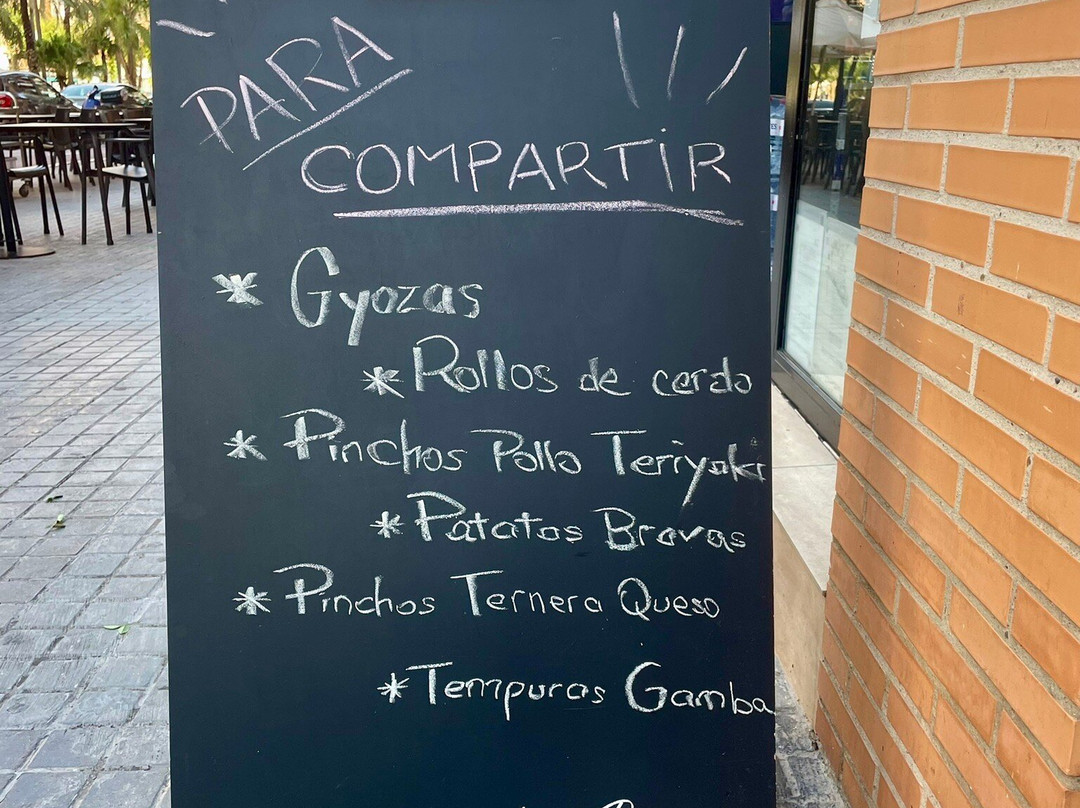 PARA
COMPARTIR
* Gyozas
* Rollos de cerdo
* Pinchos Pollo Teriyaki
* Patatas Bravas
* Pinchos Ternera Queso
* Tempuras Gamba